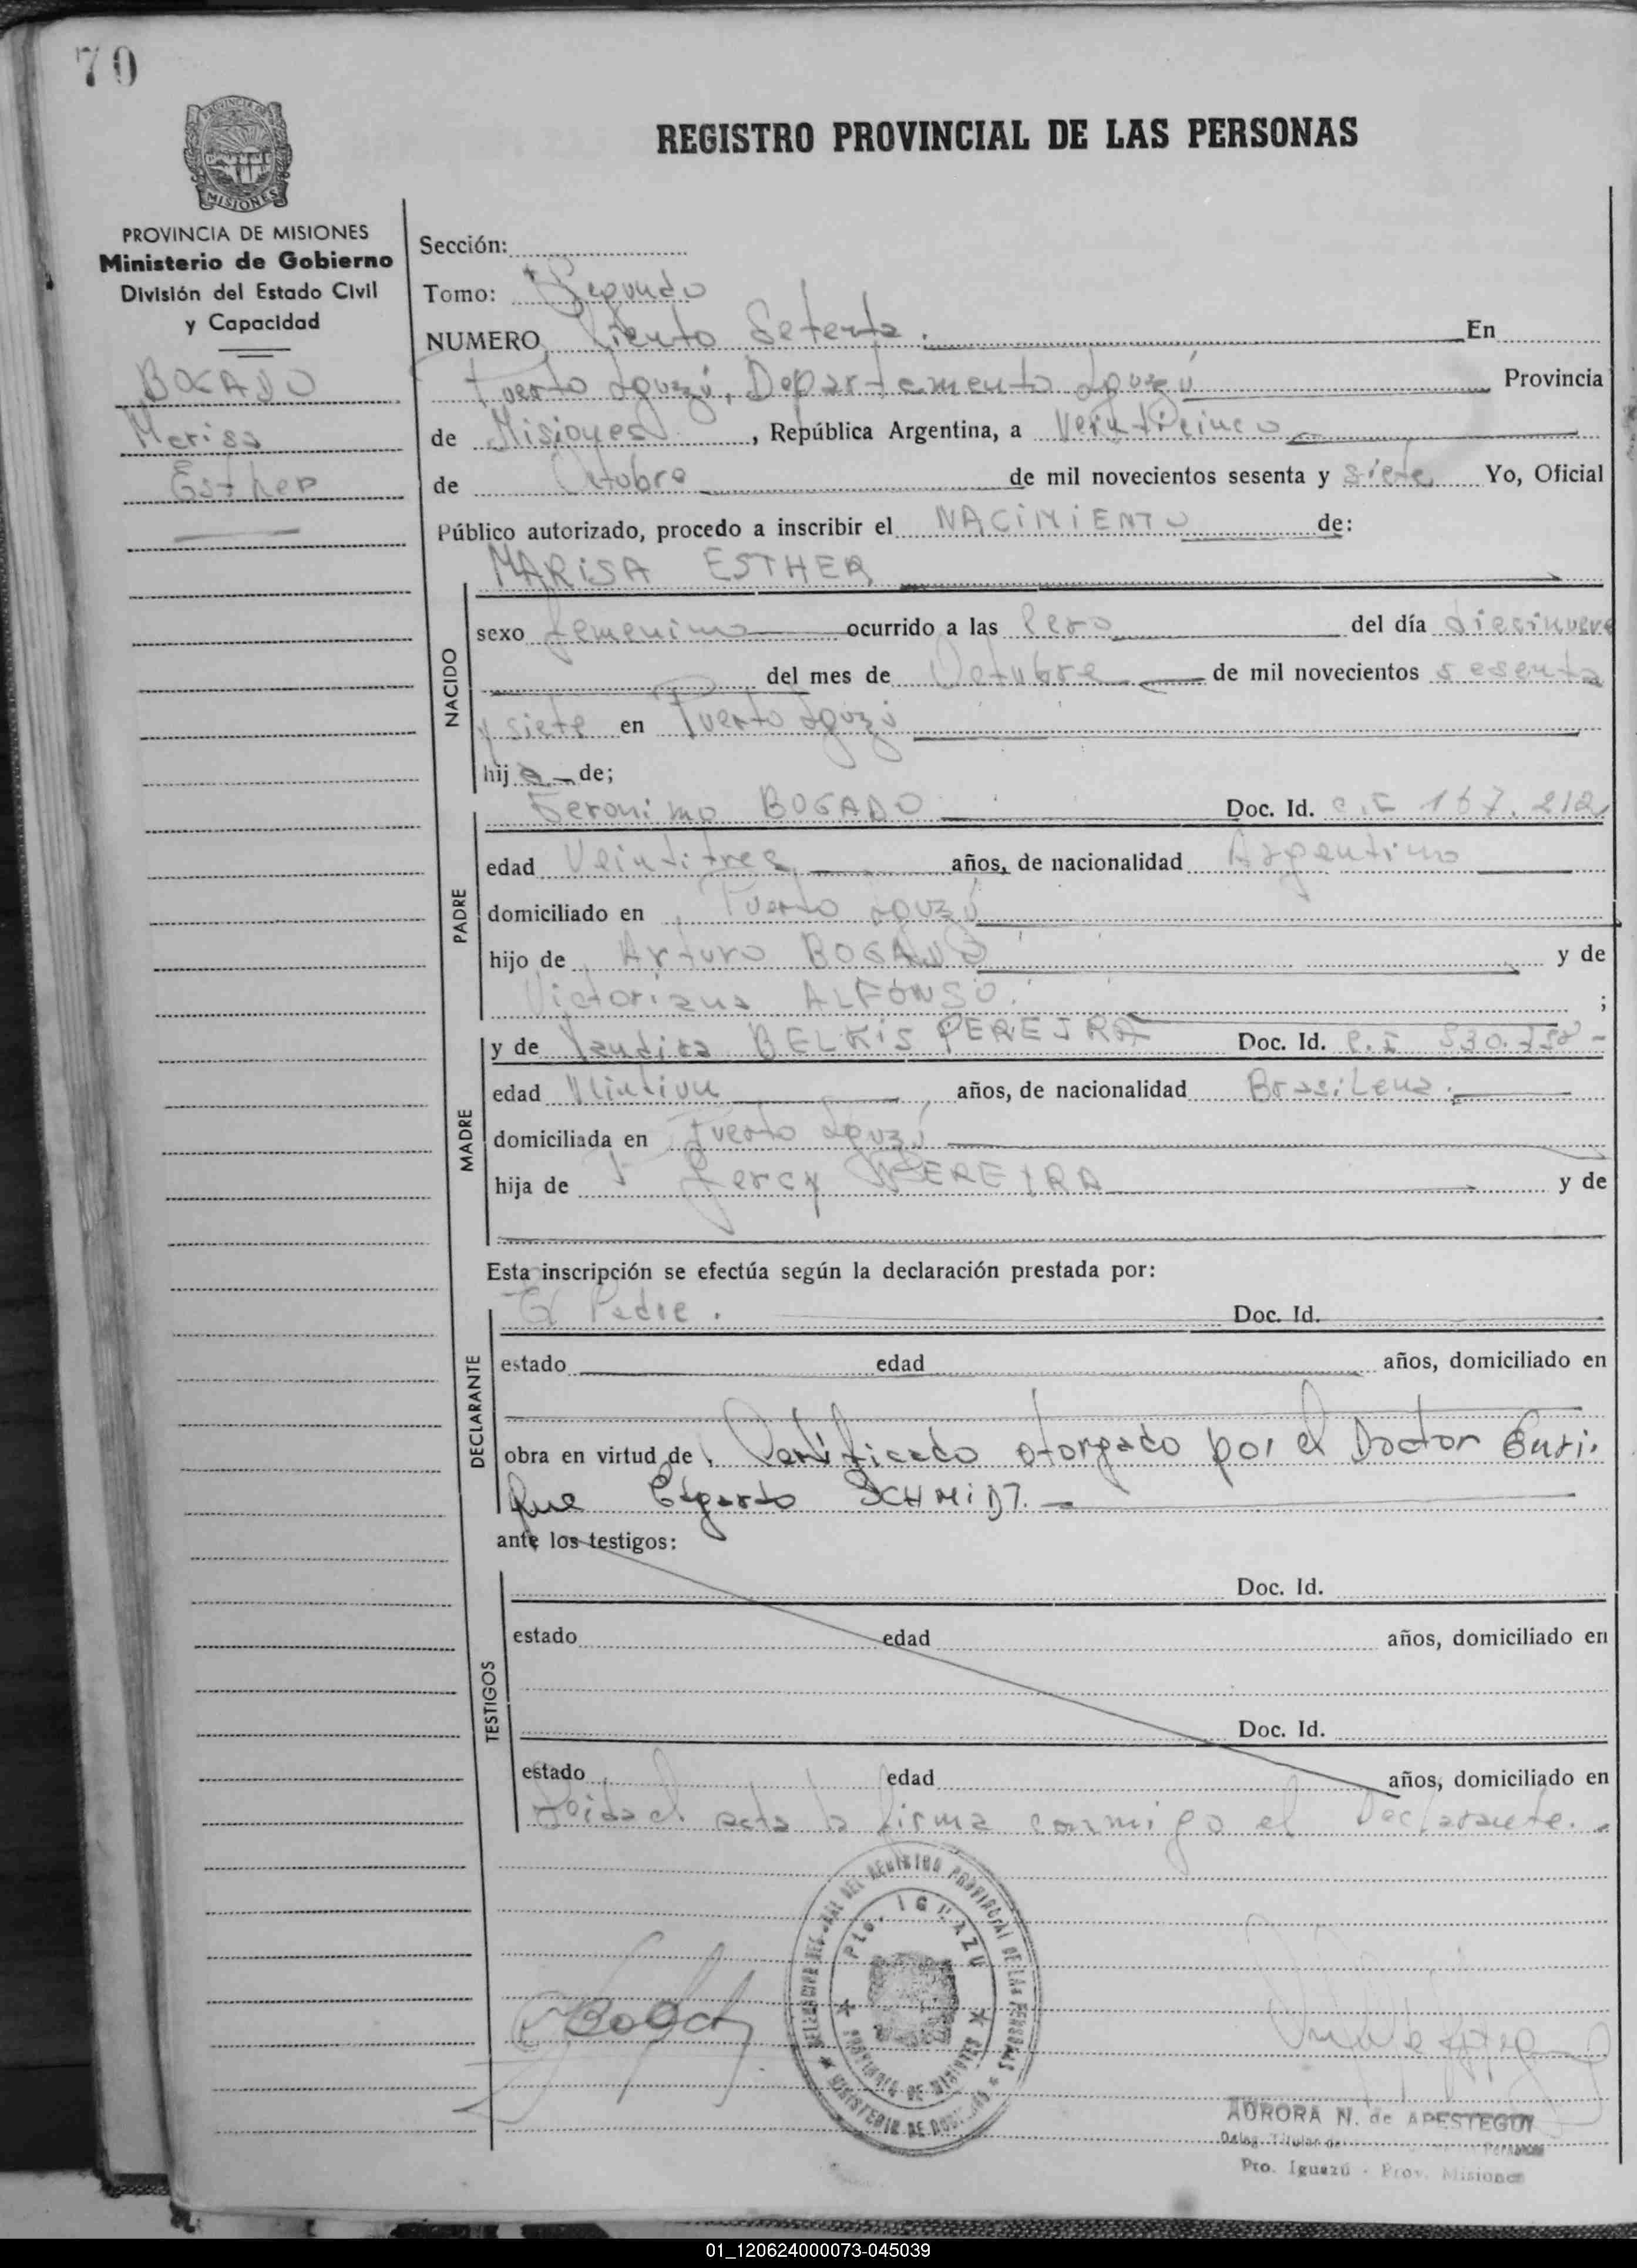 70
REGISTRO PROVINCIAL DE LAS PERSONAS
PROVINCIA DE MISIONES
MISIONES
PROVINCIA DE MISIONES
Ministerio de Gobierno
División del Estado Civil
y Capacidad
BOGADO
Marisa
Esther
Sección:
Tomo: Segundo
NUMERO Ciento Setenta. En
Puerto Iguazú, Departamento Iguazú Provincia
de Misiones, República Argentina, a Veinticinco
de Octubre de mil novecientos sesenta y siete Yo, Oficial
Público autorizado, procedo a inscribir el NACIMIENTO de:
MARISA ESTHER
NACIDO
sexo femenino ocurrido a las cero del día diecinueve
del mes de Octubre de mil novecientos sesenta
y siete en Puerto Iguazú
hija de;
PADRE
Geronimo BOGADO Doc. Id. C.I 167.212
edad Veintitres años, de nacionalidad Argentino
domiciliado en Puerto Iguazú
hijo de Arturo BOGADO y de
Victoriana ALFONSO. ;
MADRE
y de BELKIS PEREIRA Doc. Id. C.I 530.
edad años, de nacionalidad Brasilena.
domiciliada en Puerto Iguazú
hija de PEREIRA y de
Esta inscripción se efectúa según la declaración prestada por:
DECLARANTE
El Padre. Doc. Id.
estado edad años, domiciliado en
obra en virtud de Certificado otorgado por el Doctor Enri-
que Edgardo SCHMIDT.
ante los testigos:
TESTIGOS
Doc. Id.
estado edad años, domiciliado en
Doc. Id.
estado edad años, domiciliado en
Leida el acta la firma conmigo el Declarante.
DEL REGISTRO PROVINCIAL DE LAS PERSONAS
Pto. IGUAZU
PROVINCIA DE MISIONES
MINISTERIO DE
AURORA N. de APESTEGUI
Deleg. Titular
Pto. Iguazú - Prov. Misiones
01_120624000073-045039